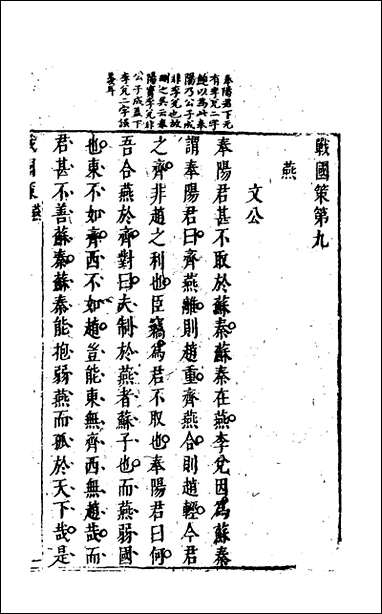 戰國策第九
燕
文公
奉陽君下元
有李兌二字
鮑以為此奉
陽乃公子成
非李兌也故
刪之吳云奉
陽實李兌非
公子成蓋下
李兌二字誤
耳
奉陽君甚不取於蘇秦蘇秦在燕李兌因為蘇秦
謂奉陽君曰齊燕離則趙重齊燕合則趙輕今君
之齊非趙之利也臣竊為君不取也奉陽君曰何
吾合燕於齊對曰夫制於燕者蘇子也而燕弱國
也東不如齊西不如趙豈能東無齊西無趙哉而
君甚不善蘇秦蘇秦能抱弱燕而孤於天下哉是
戰國策